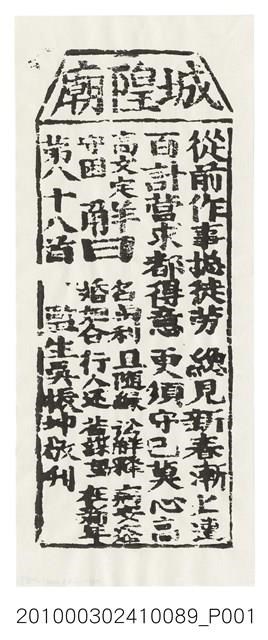 城隍廟
從前作事總徒勞 纔見新春漸上遭
百計營求都得意 更須守己莫心高
高文定
守困
解曰
名與利 且隨緣 訟解釋 病安痊
婚和合 行人還 若謀望 在新年
第八十八首 監生吳振坤敬刊
201000302410089_P001